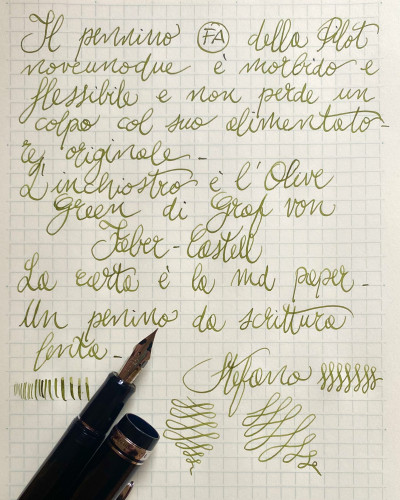 Il pennino FA della Pilot
novecnoque è morbido e
flessibile e non perde un
colpo col suo alimentato-
re originale.
L'inchiostro è l'Olive
Green di Graf von
Faber-Castell
La carta è la md paper.
Un penino da scrittura
lenta.
Stefano